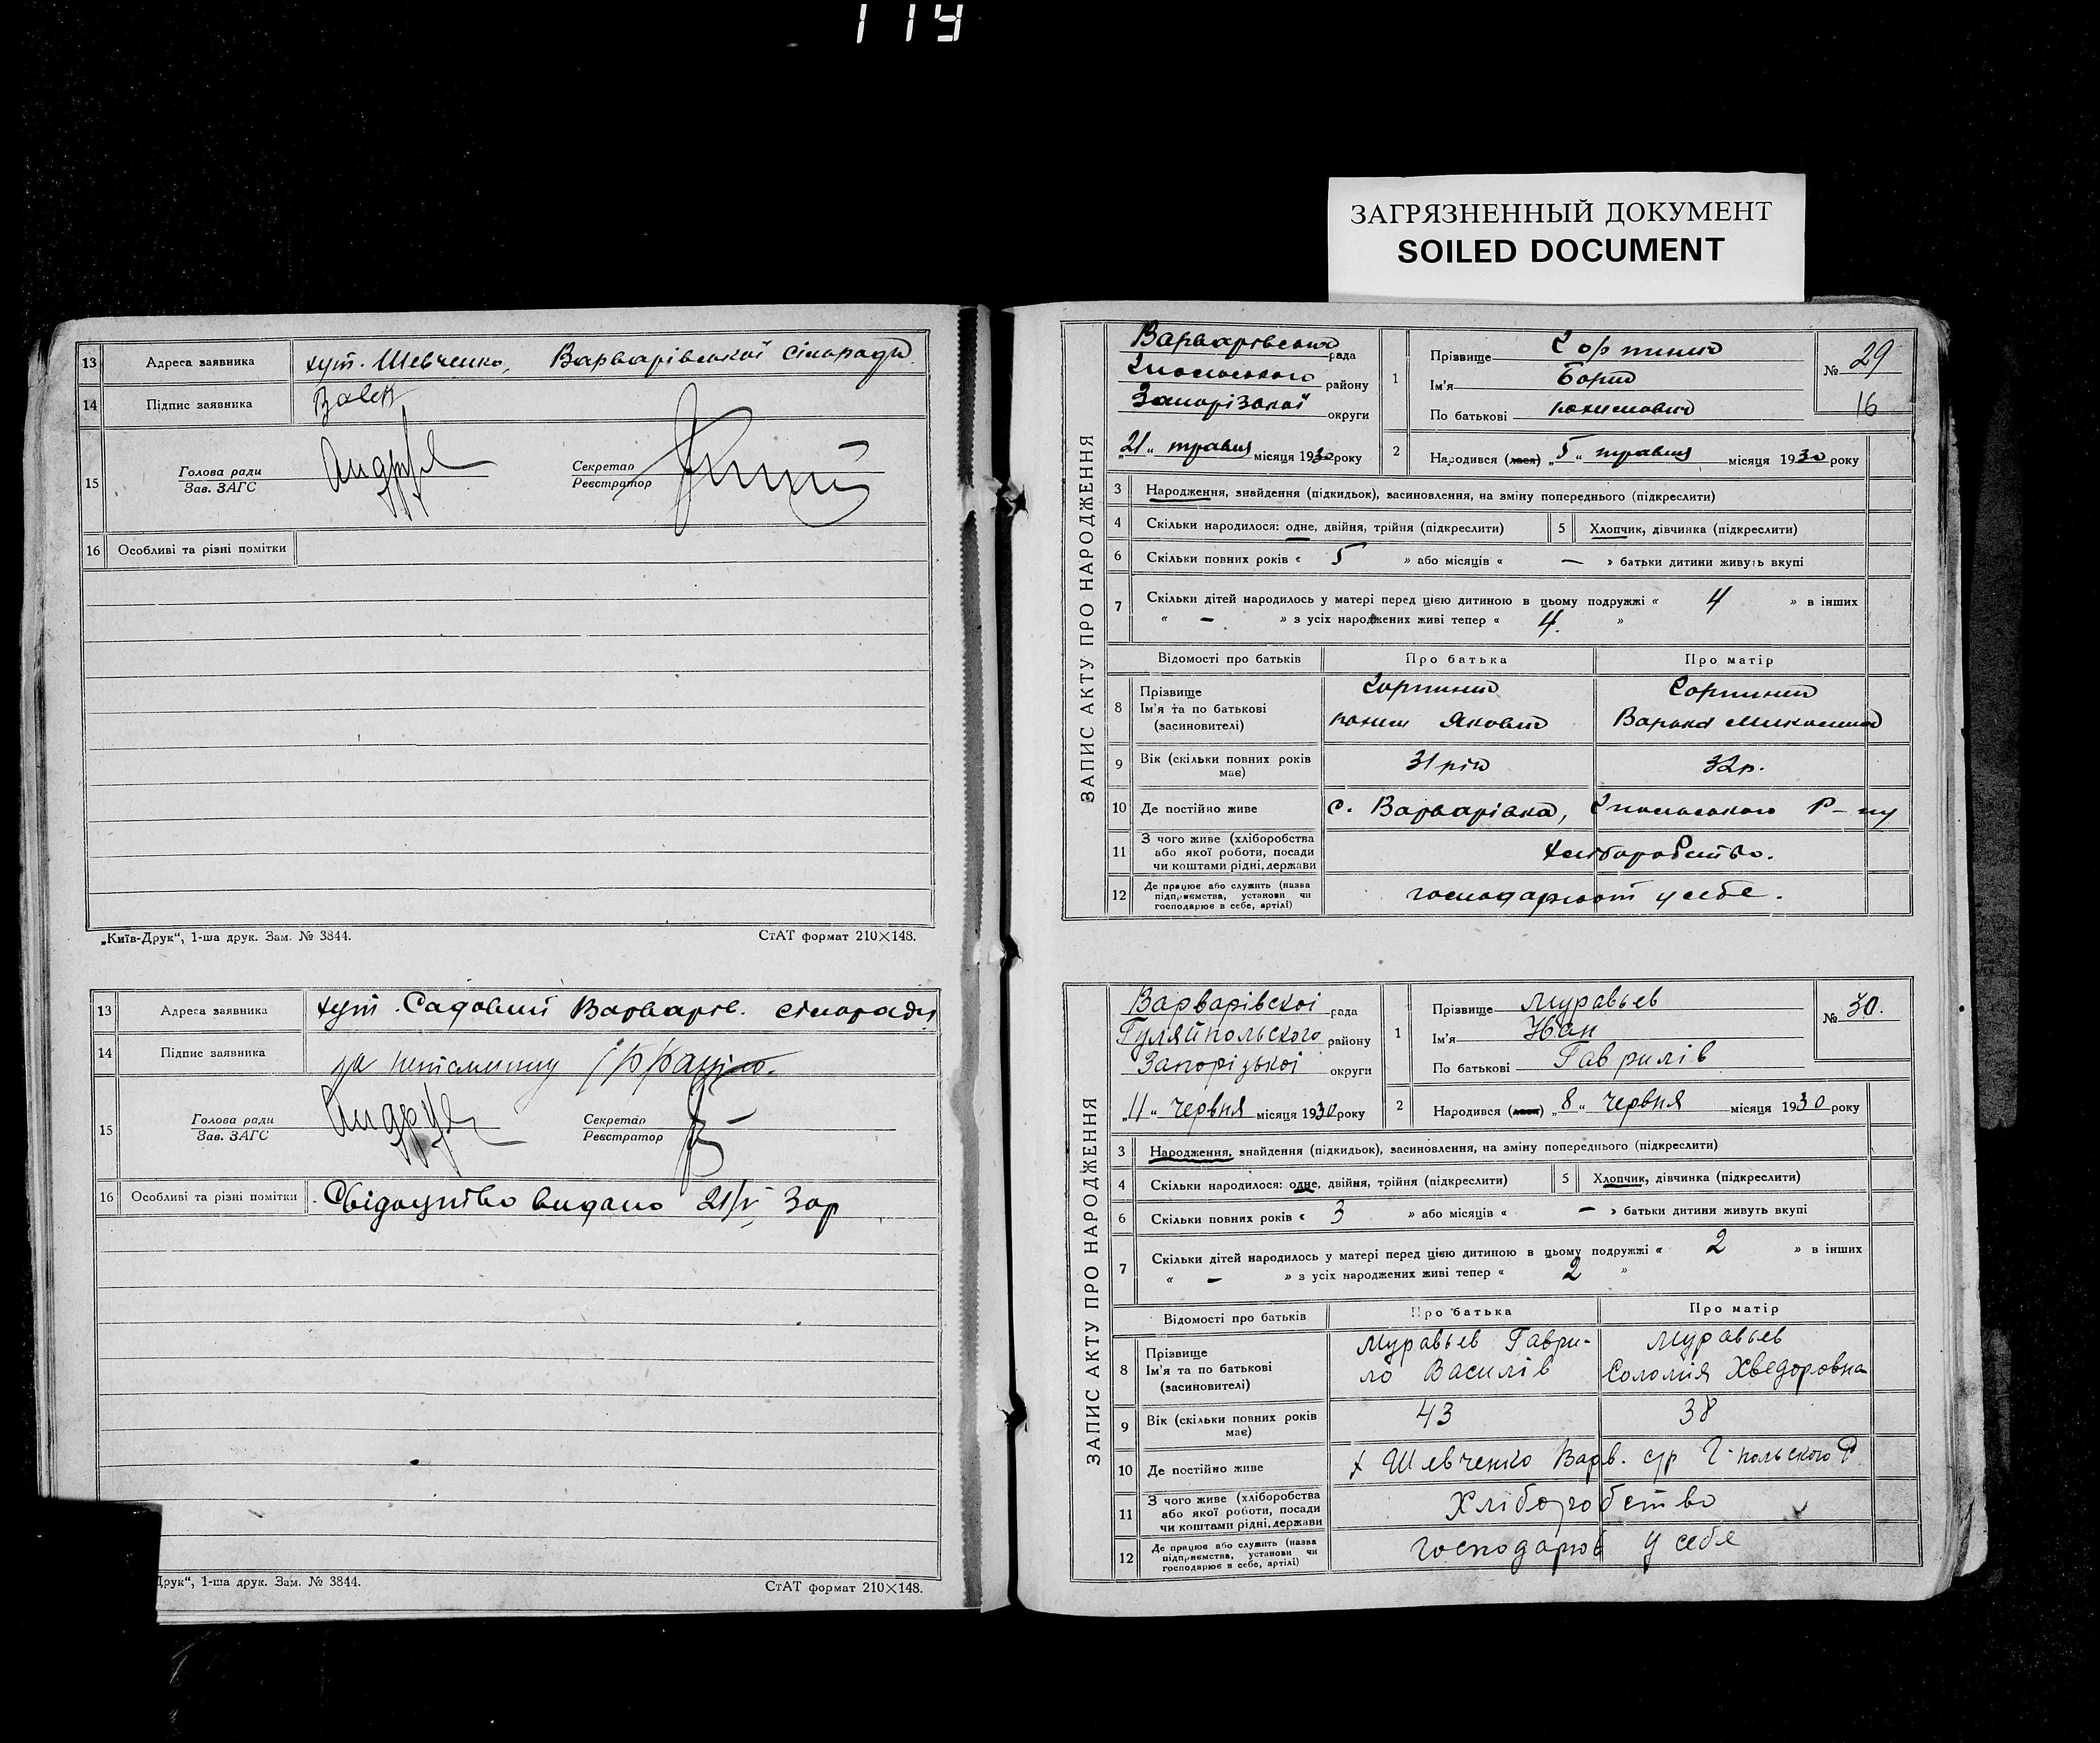 114
ЗАГРЯЗНЕННЫЙ ДОКУМЕНТ
SOILED DOCUMENT
13 Адреса заявника хут. Шевченко, Варварівської сільради
14 Підпис заявника
15 Голова ради
Зав. ЗАГС
Секретар
Реєстратор
16 Особливі та різні помітки
„Київ-Друк“, 1-ша друк. Зам. № 3844. СтАТ формат 210×148.
13 Адреса заявника хут. Садовий Варварів. сільради
14 Підпис заявника за неписьменну
15 Голова ради
Зав. ЗАГС
Секретар
Реєстратор
16 Особливі та різні помітки Свідоцтво видано 21/V 30р
Друк“, 1-ша друк. Зам. № 3844. СтАТ формат 210×148.
ЗАПИС АКТУ ПРО НАРОДЖЕННЯ
Варварівської рада
району
Запорізької округи
„21“ травня місяця 1930 року
1 Прізвище
Ім'я Борис
По батькові
№ 29
16
2 Народився (лася) „5“ травня місяця 1930 року
3 Народження, знайдення (підкидьок), засиновлення, на зміну попереднього (підкреслити)
4 Скільки народилося: одне, двійня, трійня (підкреслити) 5 Хлопчик, дівчинка (підкреслити)
6 Скільки повних років « 5 » або місяців « — » батьки дитини живуть вкупі
7 Скільки дітей народилось у матері перед цією дитиною в цьому подружжі « 4 » в інших
« – » з усіх народжених живі тепер « 4 »
Відомості про батьків Про батька Про матір
8 Прізвище
Ім'я та по батькові Якович
(засиновителі)
9 Вік (скільки повних років має) 31 рік 32р.
10 Де постійно живе с. Варварівка, Р-ну
11 З чого живе (хліборобства
або якої роботи, посади хліборобство.
чи коштами рідні, держави
12 Де працює або служить (назва
підприємства, установи чи господарюют у себе.
господарює в себе, артілі)
ЗАПИС АКТУ ПРО НАРОДЖЕННЯ
Варварівскої рада
Гуляйпольского району
Запорізької округи
„11“ червня місяця 1930 року
1 Прізвище Муравьев
Ім'я Йван
По батькові Гаврилів
№ 30.
2 Народився (лася) „8“ червня місяця 1930 року
3 Народження, знайдення (підкидьок), засиновлення, на зміну попереднього (підкреслити)
4 Скільки народилося: одне, двійня, трійня (підкреслити) 5 Хлопчик, дівчинка (підкреслити)
6 Скільки повних років « 3 » або місяців « – » батьки дитини живуть вкупі
7 Скільки дітей народилось у матері перед цією дитиною в цьому подружжі « 2 » в інших
« – » з усіх народжених живі тепер « 2 »
Відомості про батьків Про батька Про матір
8 Прізвище Муравьев Гаври- Муравьев
Ім'я та по батькові ло Василів Соломия Хведоровна
(засиновителі)
9 Вік (скільки повних років має) 43 38
10 Де постійно живе х Шевченко Варв. с/р Г-польского Р
11 З чого живе (хліборобства
або якої роботи, посади Хліборобство
чи коштами рідні, держави
12 Де працює або служить (назва
підприємства, установи чи господарює у себе
господарює в себе, артілі)